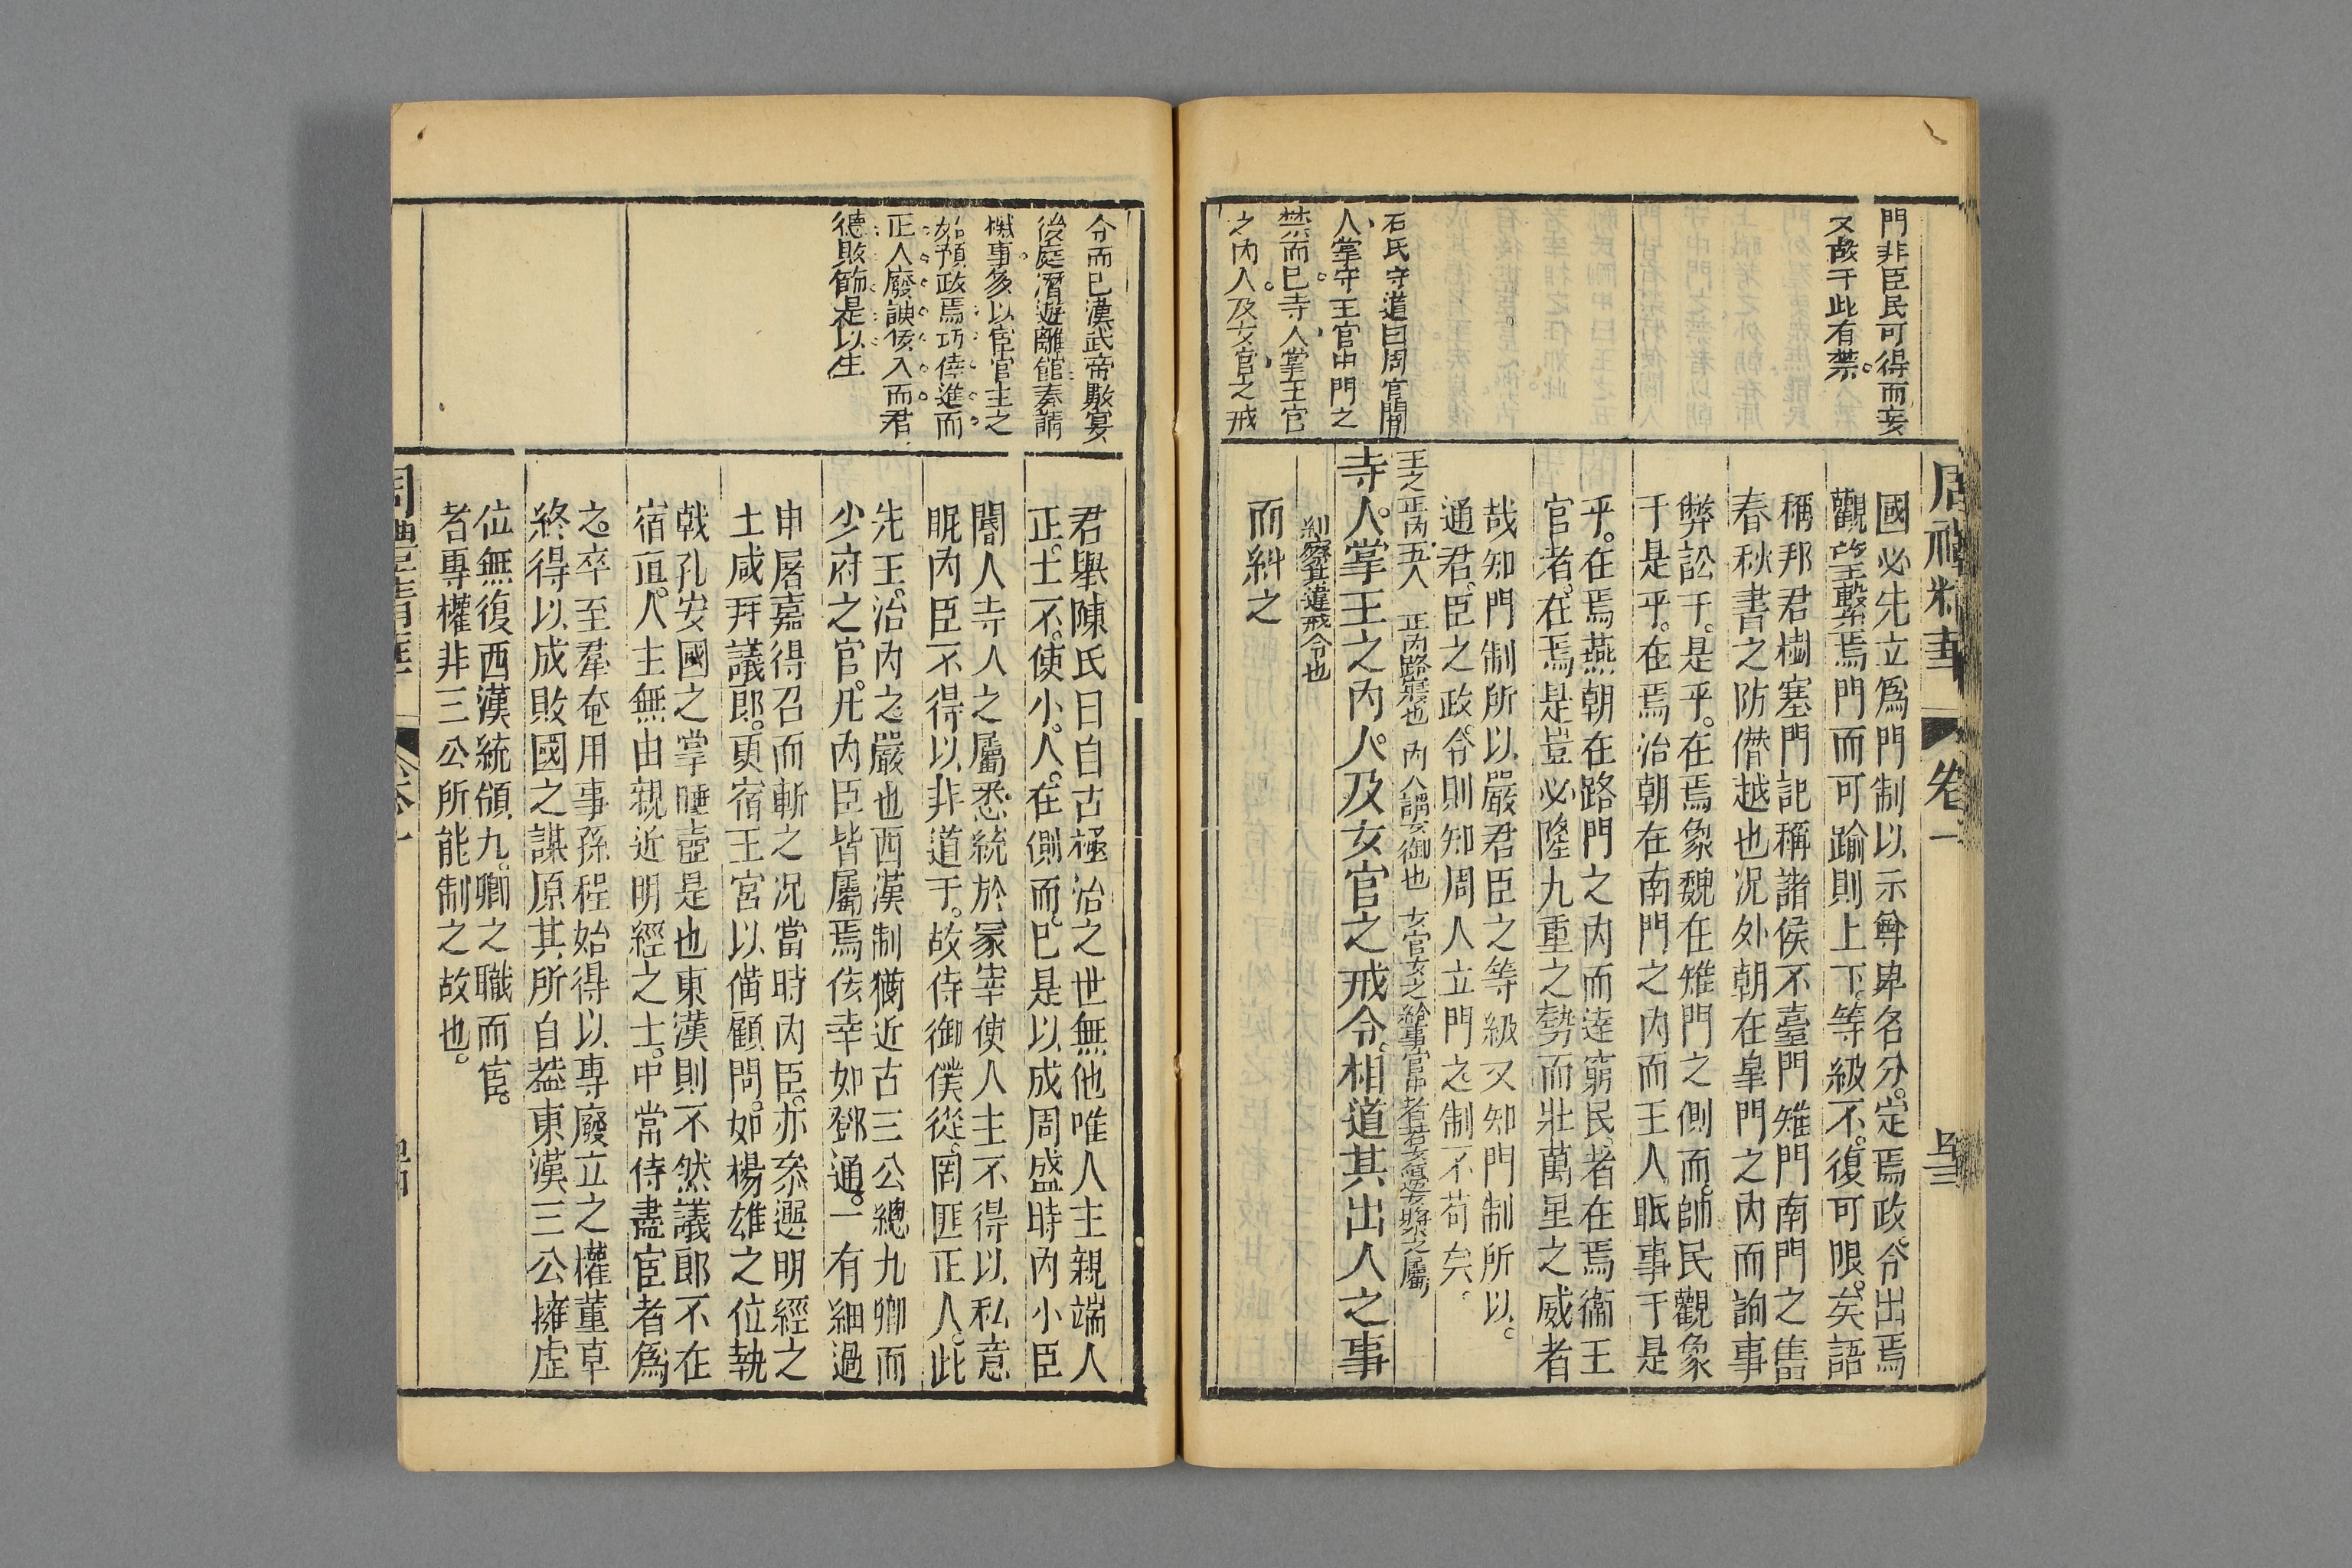 門非臣民可得而妄
又故于此有禁
石氏守道曰周官閽
人掌守王宫中門之
禁而巳寺人掌王宫
之内人及女宫之戒
國必先立爲門制以示尊卑名分定焉政令出焉
觀望繫焉門而可踰則上下等級不復可限矣語
稱邦君樹塞門記稱諸侯不臺門雉門南門之舊
春秋書之防僣越也况外朝在臯門之内而詢事
弊訟于是乎在焉象魏在雉門之側而師民觀象
于是乎在焉治朝在南門之内而王人眡事于是
乎在焉燕朝在路門之内而逹窮民者在焉衞王
宫者在焉是豈必陸九重之勢而壯萬里之威者
哉知門制所以嚴君臣之等級又知門制所以
通君臣之政令則知周人立門之制不苟矣
王之正内五人 正内路寢也 内人謂女御也 女宫女之給事宫中者
寺人掌王之内人及女宫之戒令相道其出入之事
糾察其違戒令也
而糾之
周禮精華 卷一
令而巳漢武帝數宴
後庭濳遊離館奏請
機事多以宦官主之
始預政焉巧倖進而
正人廢諛佞入而君
德敗篩是以生
君舉陳氏曰自古極治之世無他唯人主親端人
正士不使小人在側而巳是以成周盛時内小臣
閽人寺人之屬悉統於冢宰使人主不得以私意
眤内臣不得以非道干故侍御僕從罔匪正人此
先王治内之嚴也西漢制猶近古三公總九卿而
少府之官凡内臣皆屬焉佞幸如鄧通一有細過
申屠嘉得召而斬之况當時内臣亦叅選明經之
士咸拜議郎更宿王宮以備顧問如楊雄之位執
戟孔安國之掌唾壺是也東漢則不然議郎不在
宿直人主無由親近明經之士中常侍盡宦者爲
之卒至羣奄用事孫程始得以專廢立之權董卓
終得以成敗國之謀原其所自葢東漢三公擁虛
位無復西漢統領九卿之職而宦
者專權非三公所能制之故也